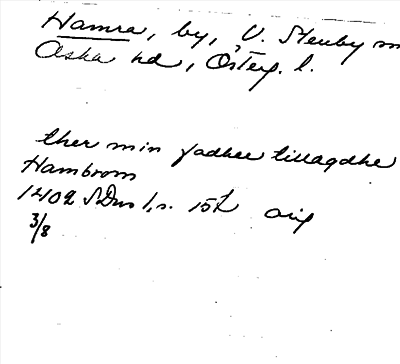 Hamra, by, V. Stenby sn
Aska hd, Österg. l.
ther min fadher tillagdhe
Hambrom
1402 SDns l, s. 152 orig
3/8